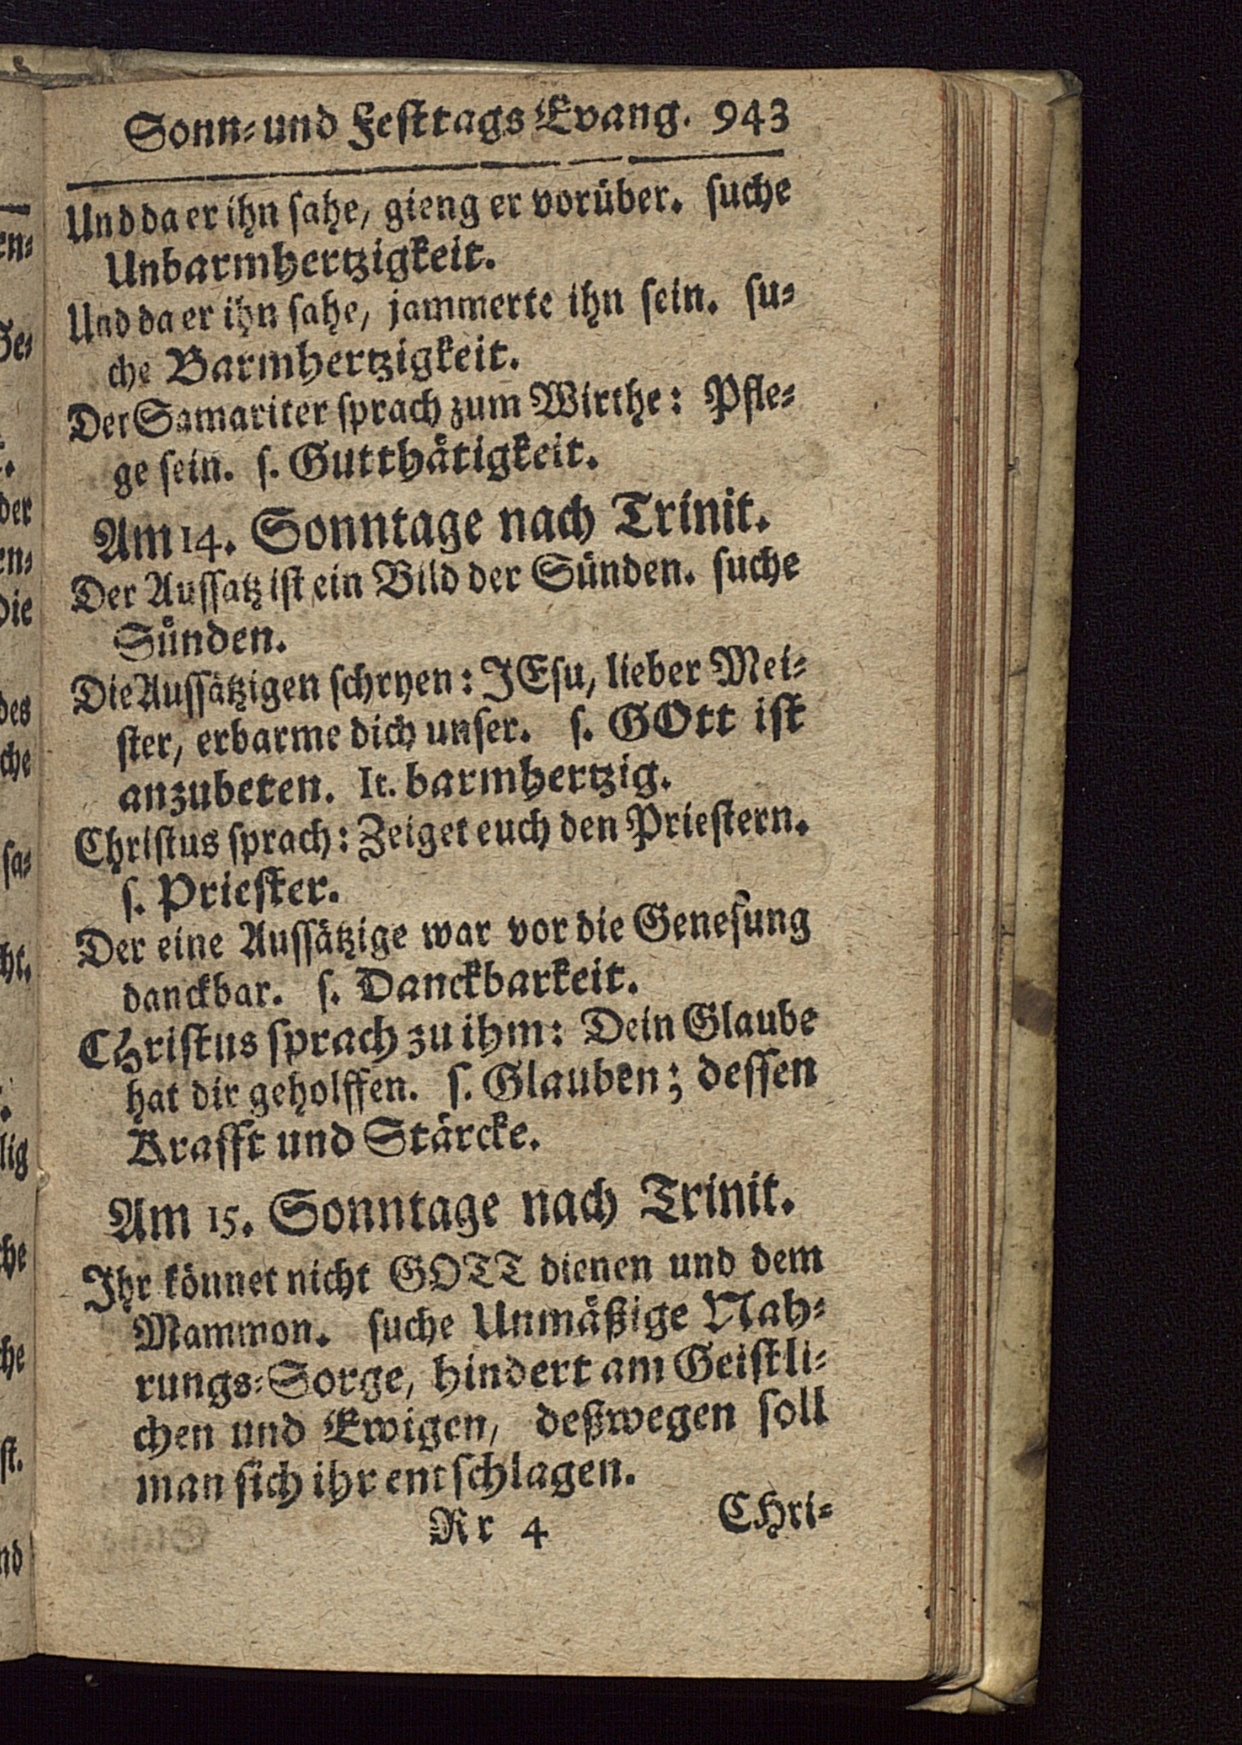 Sonn- und Festtags Evang. 943
Und da er ihn sahe, gieng er vorüber. suche
Unbarmhertzigkeit.
Und da er ihn sahe, jammerte ihn sein. su-
che Barmhertzigkeit.
Der Samariter sprach zum Wirthe: Pfle-
ge sein. s. Gutthätigkeit.
Am 14. Sonntage nach Trinit.
Der Aussatz ist ein Bild der Sünden. suche
Sünden.
Die Aussätzigen schryen: JEsu, lieber Mei-
ster, erbarme dich unser. s. GOtt ist
anzubeten. It. barmhertzig.
Christus sprach: Zeiget euch den Priestern.
s. Priester.
Der eine Aussätzige war vor die Genesung
danckbar. s. Danckbarkeit.
CHristus sprach zu ihm: Dein Glaube
hat dir geholffen. s. Glauben; dessen
Krafft und Stärcke.
Am 15. Sonntage nach Trinit.
Ihr könnet nicht GOTT dienen und dem
Mammon. suche Unmäßige Nah-
rungs-Sorge, hindert am Geistli-
chen und Ewigen, deßwegen soll
man sich ihr entschlagen.
Rr 4 CHri-